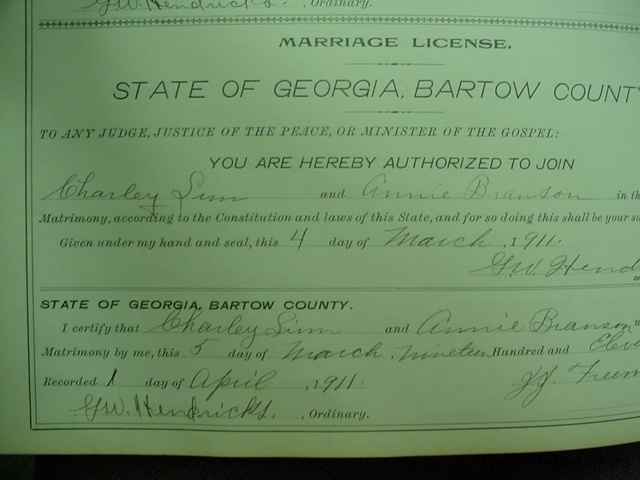 G.W. Hendricks. , Ordinary.
MARRIAGE LICENSE.
STATE OF GEORGIA, BARTOW COUNTY
TO ANY JUDGE, JUSTICE OF THE PEACE, OR MINISTER OF THE GOSPEL:
YOU ARE HEREBY AUTHORIZED TO JOIN
Charley Linn and Annie Branson in th
Matrimony, according to the Constitution and laws of this State, and for so doing this shall be your su
Given under my hand and seal, this 4 day of March , 1911.
G.W. Hend
STATE OF GEORGIA, BARTOW COUNTY.
I certify that Charley Linn and Annie Branson w
Matrimony by me, this 5 day of March , nineteen Hundred and Eleve
Recorded 1 day of April , 1911. J.J. Freem
G.W. Hendricks. , Ordinary.